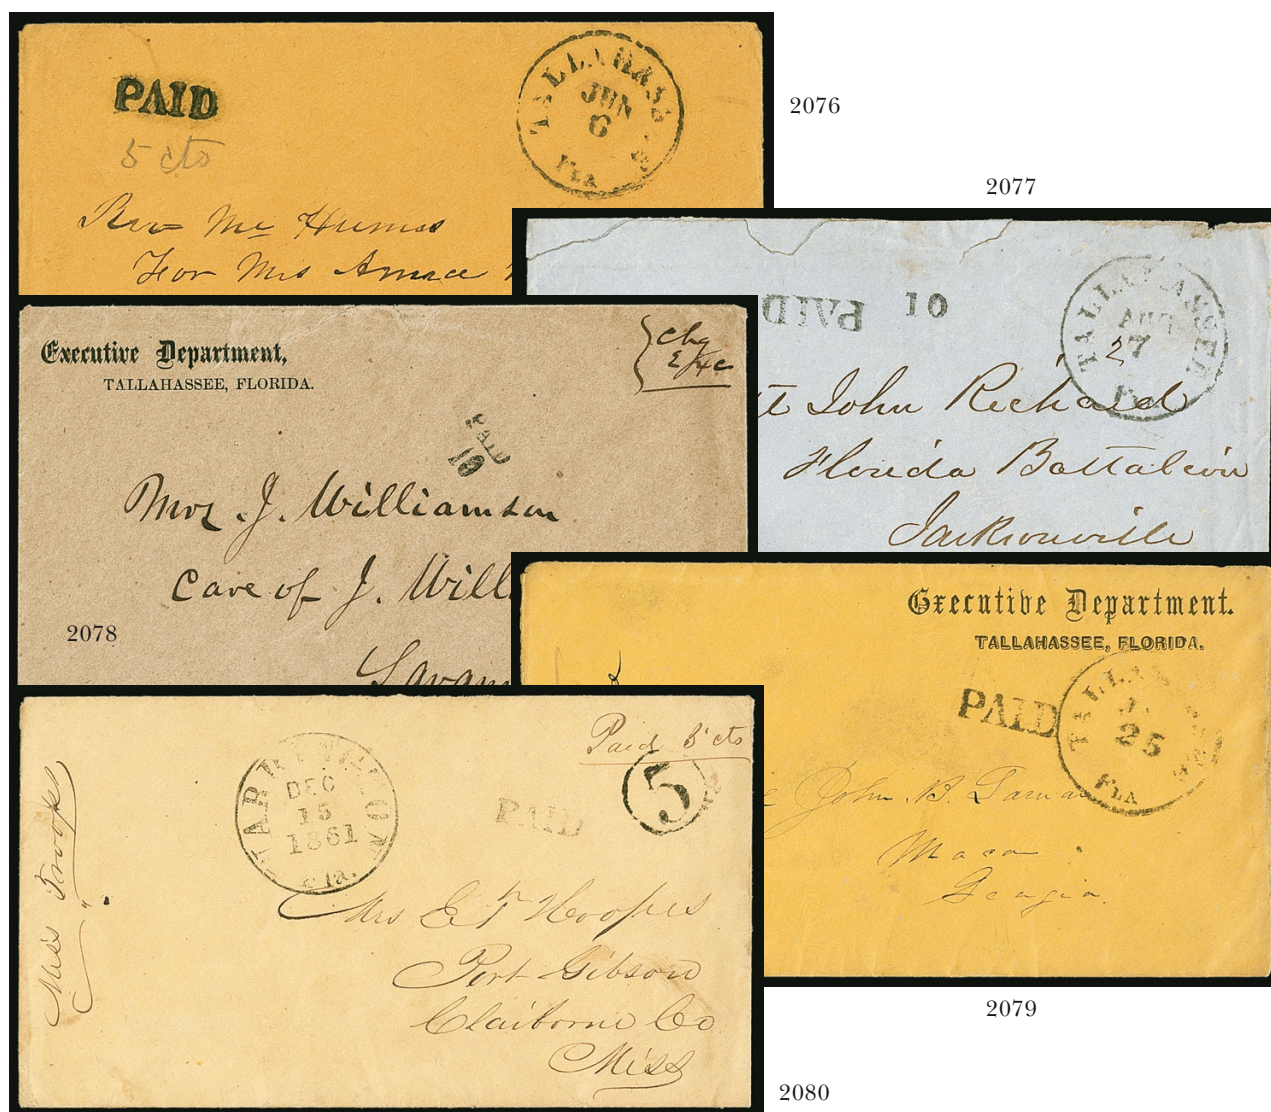 PAID
5 cts
TALLAHASSEE
JUN
6
FLA
2076
Rev Mr Humes
For Mrs
2077
PAID 10
TALLAHASSEE
AUG
7
Fla
2
John Richard
Florida Battaleoin
Jacksonville
Executive Department,
TALLAHASSEE, FLORIDA.
Chg
PAID
10
Mrs. J. Williamson
Care of J. Will
Savann
2078
Executive Department.
TALLAHASSEE, FLORIDA.
PAID
TALLAHASSEE
25
FLA
John B. Lamar
Macon
Georgia.
2079
Paid 5 cts
WARRINGTON
DEC
15
1861
Fla.
PAID
5
Miss
Mrs E F Hoopes
Port Gibson
Claiborne Co
Miss
2080